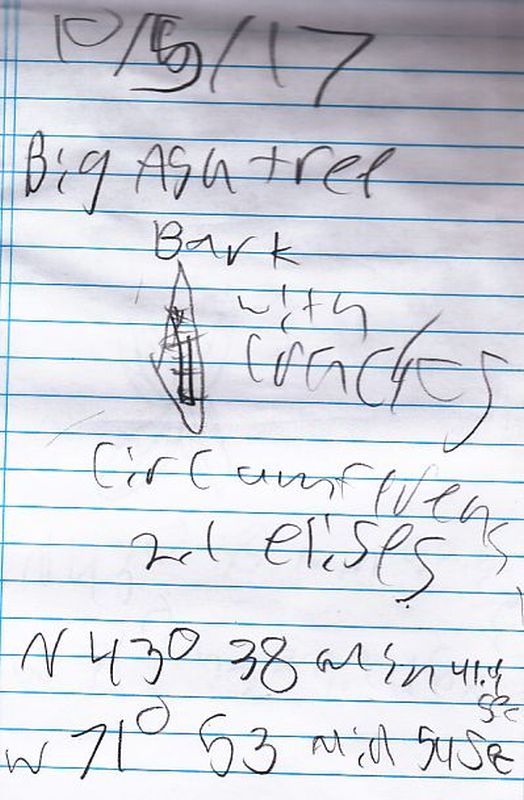 10/5/17
Big Ash tree
Bark
with
cracks
Circumferens
2.1 elises
N 43° 38 min 41.4
sec
W 71° 53 min 54 Se